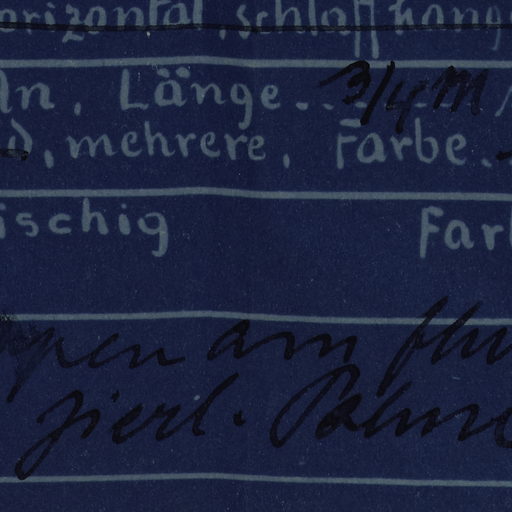 orizontal, schlaff häng
ln, Länge . . 3/4 M
d, mehrere, Farbe .
ischig Farb
ppen am
zierl. Palme